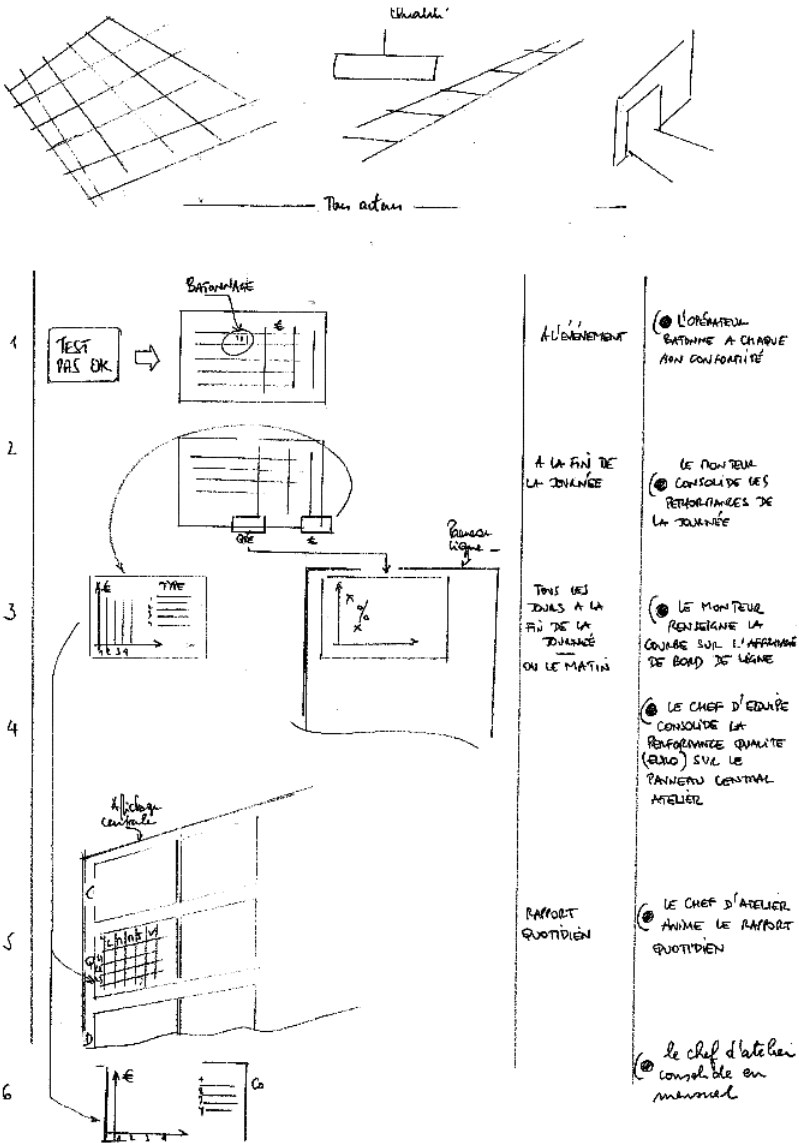 Qualité
Tous acteurs
BATONNAGE
€
1
TEST
PAS OK
A L'ÉVÉNEMENT
L'OPÉRATEUR
BATONNE A CHAQUE
NON CONFORMITÉ
2
A LA FIN DE
LA JOURNÉE
LE MONTEUR
CONSOLIDE LES
PERFORMANCES DE
LA JOURNÉE
QTÉ
€
Panneau
Ligne
3
€
TYPE
1 2 3 4
%
TOUS LES
JOURS A LA
FIN DE LA
JOURNÉE
OU LE MATIN
LE MONTEUR
RENSEIGNE LA
COURBE SUR L'AFFICHAGE
DE BORD DE LIGNE
4
LE CHEF D'EQUIPE
CONSOLIDE LA
PERFORMANCE QUALITE
(EURO) SUR LE
PANNEAU CENTRAL
ATELIER
Affichage
centrale
C
5
Q
L M M J V
D
RAPPORT
QUOTIDIEN
LE CHEF D'ATELIER
ANIME LE RAPPORT
QUOTIDIEN
6
€
1 2 3 4
Co
le chef d'atelier
consolide en
mensuel